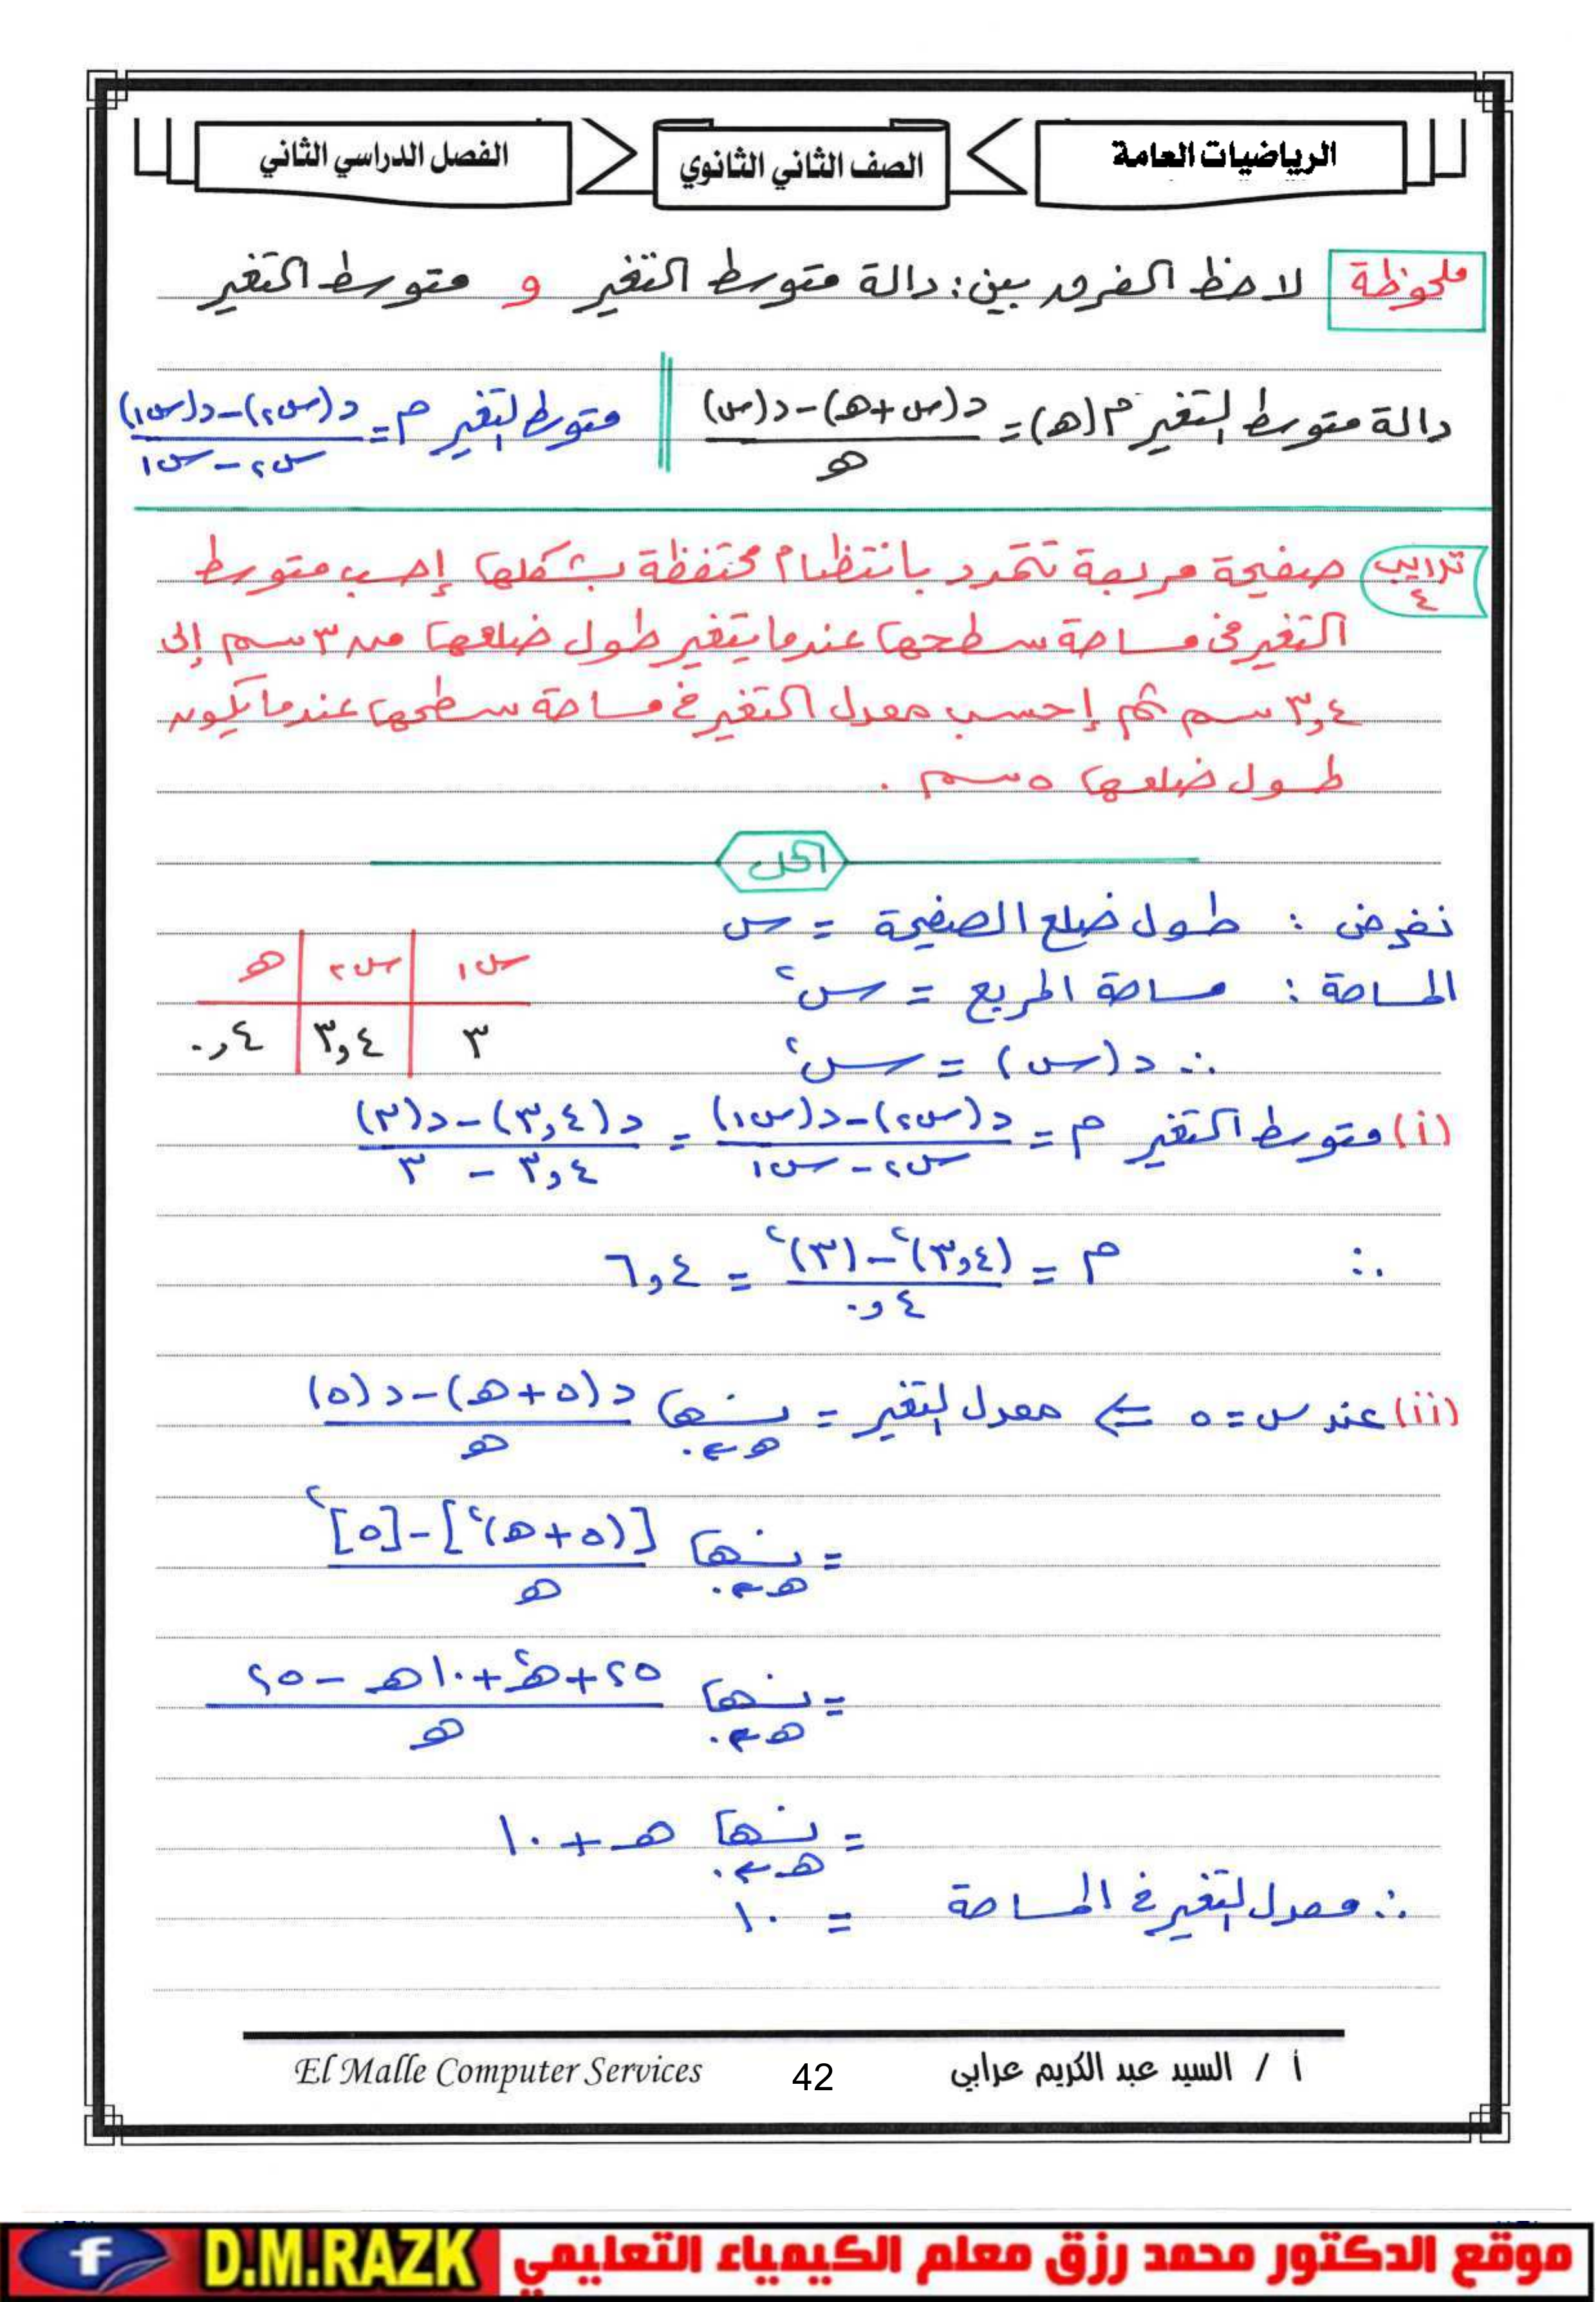 الرياضيات العامة
الصف الثاني الثانوي
الفصل الدراسي الثاني
ملحوظة لاحظ الفرق بين: دالة متوسط التغير و متوسط التغير
دالة متوسط التغير م(هـ) = (د(س+هـ) - د(س)) / هـ
متوسط التغير م = (د(س٢) - د(س١)) / (س٢ - س١)
تدريب ٤ صفيحة مربعة تتمدد بانتظام محتفظة بشكلها إحسب متوسط
التغير في مساحة سطحها عندما يتغير طول ضلعها من ٣ سم إلى
٣,٤ سم ثم إحسب معدل التغير في مساحة سطحها عندما يكون
طول ضلعها ٥ سم .
الحل
نفرض : طول ضلع الصفيحة = س
المساحة : مساحة المربع = س²
∴ د(س) = س²
س١ س٢ هـ
٣ ٣,٤ ٠,٤
(i) متوسط التغير م = (د(س٢) - د(س١)) / (س٢ - س١) = (د(٣,٤) - د(٣)) / (٣,٤ - ٣)
∴ م = ((٣,٤)² - (٣)²) / ٠,٤ = ٦,٤
(ii) عند س = ٥ ⇐ معدل التغير = نهــا هـ←٠ (د(٥+هـ) - د(٥)) / هـ
= نهــا هـ←٠ ([(٥+هـ)²] - [٥]²) / هـ
= نهــا هـ←٠ (٢٥ + هـ² + ١٠هـ - ٢٥) / هـ
= نهــا هـ←٠ هـ + ١٠
∴ معدل التغير في المساحة = ١٠
أ / السيد عبد الكريم عرابي
42
El Malle Computer Services
موقع الدكتور محمد رزق معلم الكيمياء التعليمي
D.M.RAZK
f